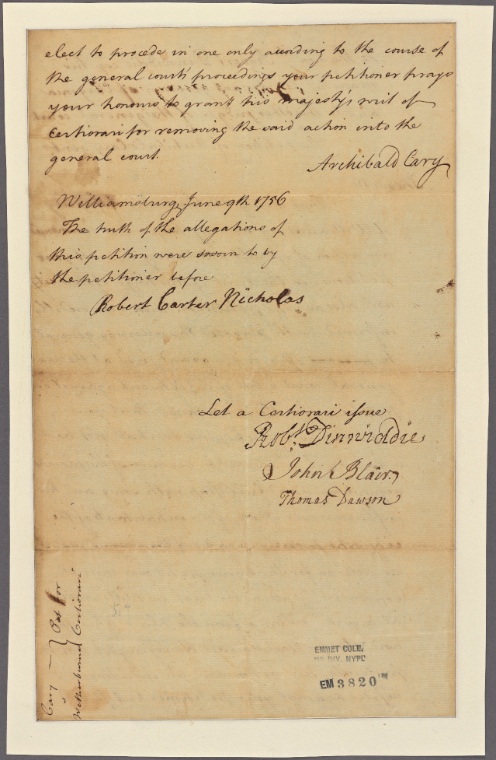 elect to procede in one only according to the course of
the general court's proceedings your petitioner prays
your honours to grant his majesty's writ of
Certiorari for removing the said action into the
general court.
Archibald Cary
Williamsburg June 9th 1756
The truth of the allegations of
this petition were sworn to by
the petitioner before
Robert Carter Nicholas
Let a Certiorari issue
Robt. Dinwiddie
John Blair
Thomas Dawson
Cary
Pet for
Certiorari
EMMET COLL.
DIV. NYPL
EM 3820